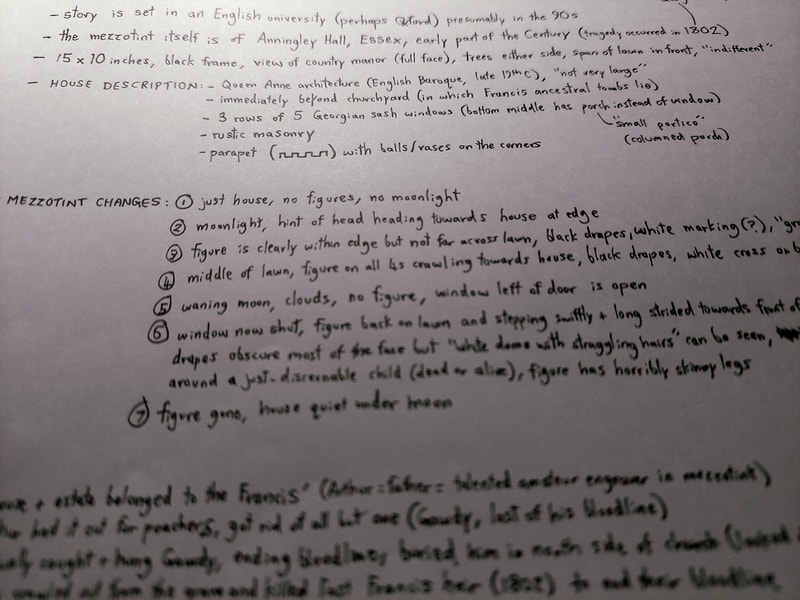 - story is set in an English university (perhaps Oxford) presumably in the 90s
- the mezzotint itself is of Anningley Hall, Essex, early part of the Century (tragedy occurred in 1802)
- 15 x 10 inches, black frame, views of country manor (full face), trees either side, span of lawn in front, "indifferent"
- HOUSE DESCRIPTION: - Queen Anne architecture (English Baroque, late 17th C), "not very large"
- immediately beyond churchyard (in which Francis ancestral tombs lie)
- 3 rows of 5 Georgian sash windows (bottom middle has porch instead of window)
"small portico"
- rustic masonry
(columned porch)
- parapet ( ) with balls/vases on the corners
MEZZOTINT CHANGES: ① just house, no figures, no moonlight
② moonlight, hint of head heading towards house at edge
③ figure is clearly within edge but not far across lawn, black drapes, white marking (?),
④ middle of lawn, figure on all 4s crawling towards house, black drapes, white cross on
⑤ waning moon, clouds, no figure, window left of door is open
⑥ window now shut, figure back on lawn and stepping swiftly + long strided towards front of
drapes obscure most of the face but "white dome with straggling hairs" can be seen,
around a just-discernable child (dead or alive), figure has horribly skinny legs
⑦ figure gone, house quiet under moon
+ estate belonged to the Francis' (Arthur = father = talented amateur engraver in mezzotint)
had it out for poachers, got rid of all but one (Gawdy, last of his bloodline)
caught + hung Gawdy, ending bloodline, buried him in north side of church
from the grave and killed last Francis heir (1802) to end their bloodline